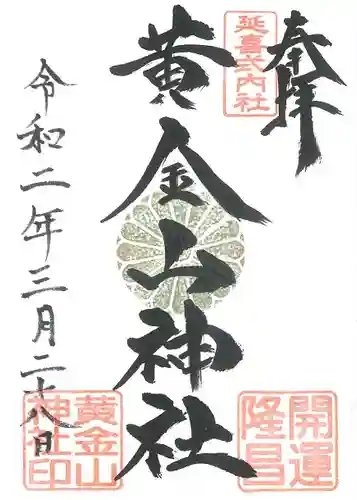 奉拝
延喜式内社
黄金山神社
令和二年三月二十八日
開運
隆昌
黄金山
神社印